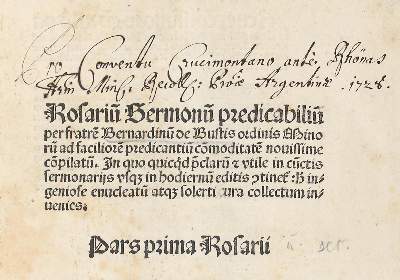 Pro Conventu Crucimontano ante Rhönas
Frm Min: Recoll: Prõæ Argentinæ 1728.
Rosariũ Sermonũ predicabiliũ
per fratrẽ Bernardinũ de Bustis ordinis Mino
rũ ad faciliorẽ predicantiũ cõmoditatẽ nouissime
cõpilatũ. In quo quicq̃d p̃clarũ ⁊ vtile in cũctis
sermonarijs vsqꝫ in hodiernũ editis ꝑtinet: hic in-
geniose enucleatũ atqꝫ solerti cura collectum in-
uenies.
Pars prima Rosarii